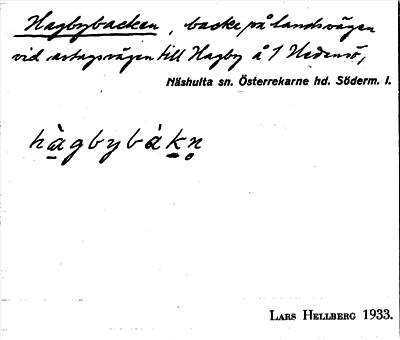 Hagbybacken, backe på landsvägen
vid avtagsvägen till Hagby å 1 Hedensö,
Näshulta sn. Österrekarne hd. Söderm. l.
hàgbybàkn̥
LARS HELLBERG 1933.